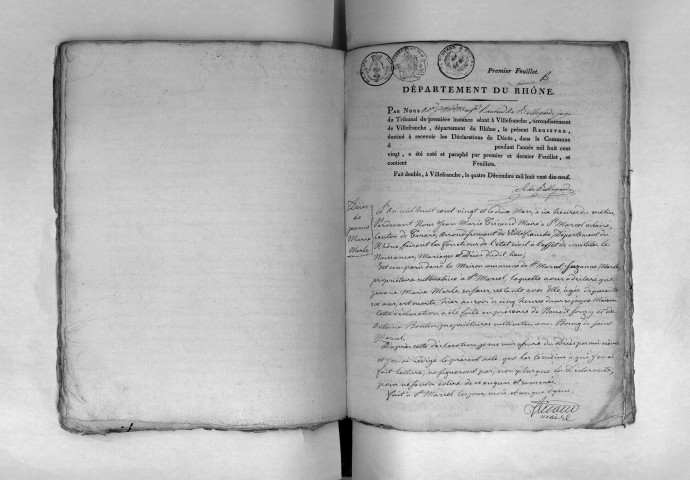 Premier Feuillet.
DÉPARTEMENT DU RHÔNE.
PAR NOUS
du Tribunal de première instance séant à Villefranche, arrondissement
de Villefranche, département du Rhône, le présent REGISTRE,
destiné à recevoir les Déclarations de Décès, dans la Commune
d pendant l'année mil huit cent
vingt, a été coté et paraphé par premier et dernier Feuillet, et
contient Feuillets.
Fait double, à Villefranche, le quatre Décembre mil huit cent dix-neuf.
Décès
de
jeanne
Marie
Marle
L'an mil huit cent vingt et le dix Mars, à six heures du matin
Pardevant Nous Jean Marie Tricaud Maire de St Marcel eclairé,
Canton de Tarare, Arrondissement de Villefranche, Département du
Rhône, faisant les fonctions de l'état civil à l'effet de constater les
Naissances, Mariages et Décès dudit lieu;
Est comparu dans la Maison commune de St Marcel, Suzanne Marle
propriétaire cultivatrice à St Marcel, laquelle nous a déclaré que
jeanne Marie Marle, sa sœur, restante avec elle, âgée de
ans, est morte hier au soir à cinq heures dans sa Maison
Cette déclaration a été faite en présence de Benoit et de
Antoine propriétaires cultivateurs au Bourg de Saint
Marcel.
D'après cette déclaration, je me suis assuré du Décès par moi même
et j'en ai rédigé le présent acte que les témoins à qui j'en ai
fait lecture, ne signeront pas, non plus que la déclarante,
pour ne savoir écrire de ce enquis et sommés.
Fait à St Marcel les jour, mois et an que dessus.
Tricaud
maire